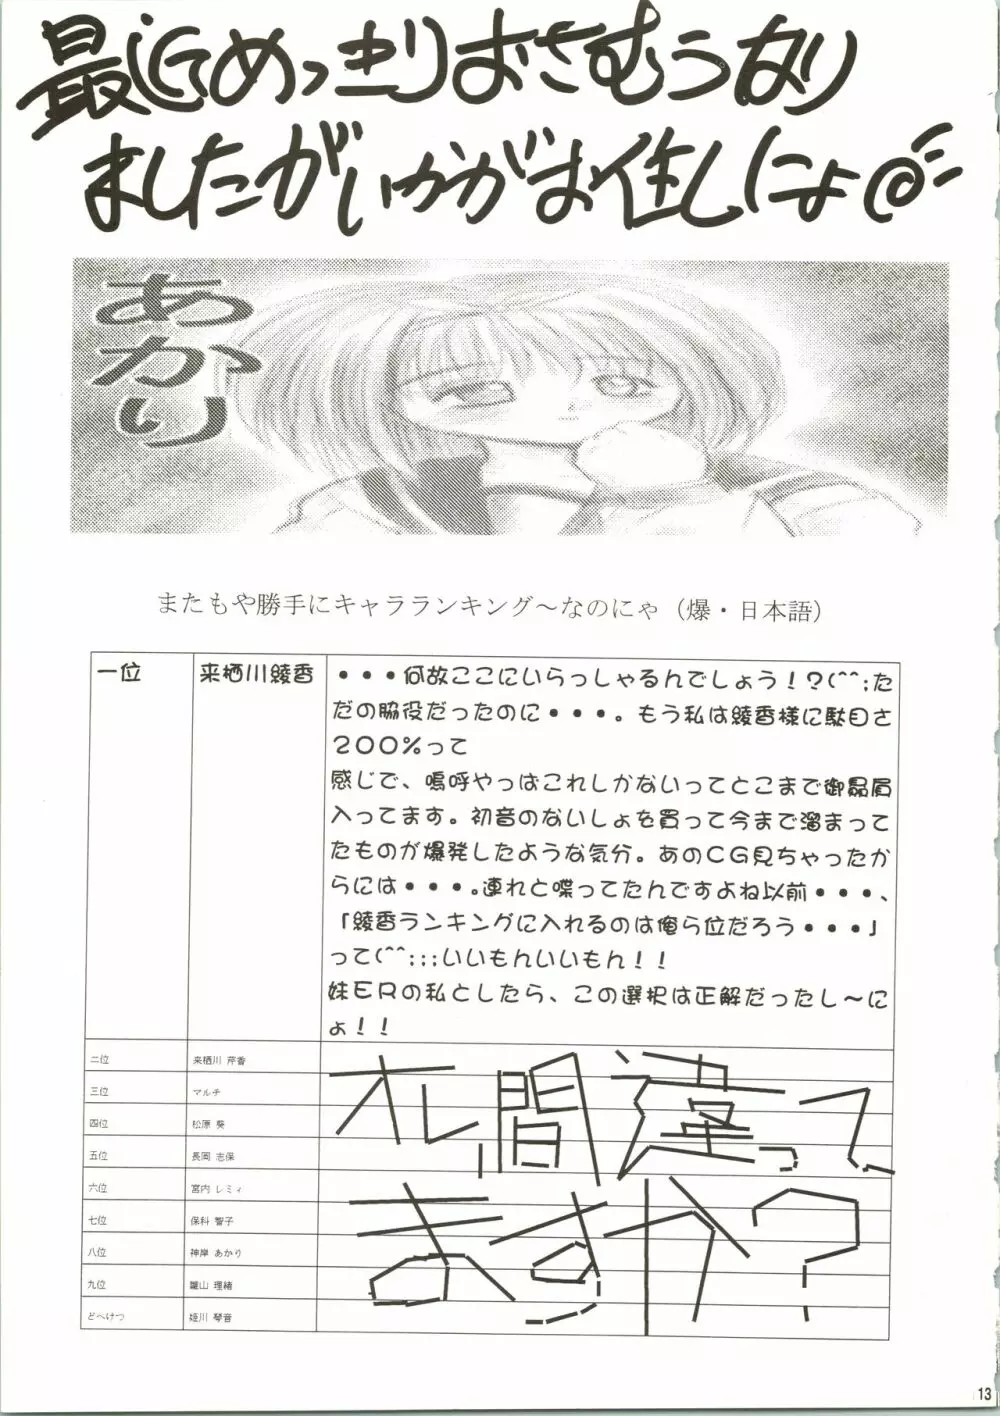 最近めっきりおさむうなり
ましたがいかがお住しにょ@
あかり
またもや勝手にキャラランキング～なのにゃ（爆・日本語）
一位 来栖川綾香 ・・・何故ここにいらっしゃるんでしょう！？(^^;た
だの脇役だったのに・・・。もう私は綾香様に駄目さ
２００％って
感じで、嗚呼やっぱこれしかないってとこまで御贔屓
入ってます。初音のないしょを買って今まで溜まって
たものが爆発したような気分。あのＣＧ見ちゃったか
らには・・・。連れと喋ってたんですよね以前・・・、
「綾香ランキングに入れるのは俺ら位だろう・・・」
って(^^;;;いいもんいいもん！！
妹ＥＲの私としたら、この選択は正解だったし～に
ょ！！
二位 来栖川 芹香
三位 マルチ
四位 松原 葵
五位 長岡 志保
六位 宮内 レミィ
七位 保科 智子
八位 神岸 あかり
九位 雛山 理緒
どべけつ 姫川 琴音
オレ、間違って
ますか？
13